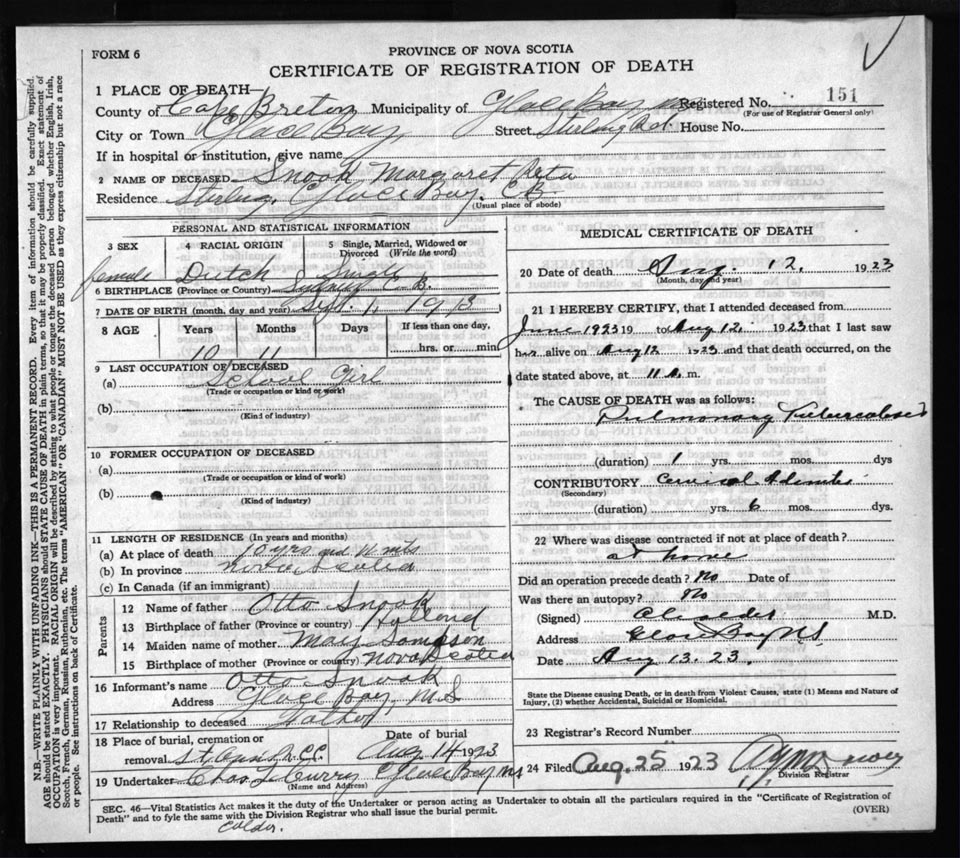 FORM 6
PROVINCE OF NOVA SCOTIA
CERTIFICATE OF REGISTRATION OF DEATH
151
1 PLACE OF DEATH—
County of Cape Breton Municipality of Glace Bay Registered No.
(For use of Registrar General only)
City or Town Glace Bay Street Sterling Rd. House No.
If in hospital or institution, give name
2 NAME OF DECEASED Snook Margaret Reta
Residence Sterling, Glace Bay. C.B.
(Usual place of abode)
PERSONAL AND STATISTICAL INFORMATION
3 SEX 4 RACIAL ORIGIN 5 Single, Married, Widowed or Divorced (Write the word)
female Dutch Single
6 BIRTHPLACE (Province or Country) Sydney C.B.
7 DATE OF BIRTH (month, day and year) Sept. 1, 1913
8 AGE Years Months Days If less than one day,
10 11 hrs. or min
9 LAST OCCUPATION OF DECEASED
(a) School Girl
(Trade or occupation or kind of work)
(b)
(Kind of industry)
10 FORMER OCCUPATION OF DECEASED
(a)
(Trade or occupation or kind of work)
(b)
(Kind of industry)
11 LENGTH OF RESIDENCE (In years and months)
(a) At place of death 10 yrs and 11 mths
(b) In province Nova Scotia
(c) In Canada (if an immigrant)
Parents
12 Name of father Otto Snook
13 Birthplace of father (Province or country) Hylland
14 Maiden name of mother Mary Sampson
15 Birthplace of mother (Province or country) Nova Scotia
16 Informant's name Otto Snook
Address Glace Bay, N.S
17 Relationship to deceased Father
18 Place of burial, cremation or removal Date of burial
Aug 14 1923
19 Undertaker Chas Glace Bay NS
(Name and Address)
MEDICAL CERTIFICATE OF DEATH
20 Date of death Aug. 12, 1923
(Month, day and year)
21 I HEREBY CERTIFY, that I attended deceased from
June 1923 19 to Aug 12. 1923 that I last saw
her alive on Aug 12 1923 and that death occurred, on the
date stated above, at 11 a. m.
The CAUSE OF DEATH was as follows:
Pulmonary Tuberculosis
(duration) 1 yrs. mos. dys
CONTRIBUTORY Cervical Adenitis
(Secondary)
(duration) yrs. 6 mos. dys.
22 Where was disease contracted if not at place of death?
at home
Did an operation precede death? No Date of
Was there an autopsy? No
(Signed) M.D.
Address Glace Bay NS
Date Aug 13. 23.
State the Disease causing Death, or in death from Violent Causes, state (1) Means and Nature of
Injury, (2) whether Accidental, Suicidal or Homicidal.
23 Registrar's Record Number
24 Filed Aug. 25 1923
Division Registrar
SEC. 46—Vital Statistics Act makes it the duty of the Undertaker or person acting as Undertaker to obtain all the particulars required in the "Certificate of Registration of
Death" and to fyle the same with the Division Registrar who shall issue the burial permit. (OVER)
Calder.
N.B.—WRITE PLAINLY WITH UNFADING INK—THIS IS A PERMANENT RECORD. Every item of information should be carefully supplied.
AGE should be stated EXACTLY. PHYSICIANS should STATE CAUSE OF DEATH in plain terms, so that it may be properly classified. Exact statement of
OCCUPATION is very important. RACIAL ORIGIN will be described by stating to what people or tongue the deceased person belonged whether English, Irish,
Scotch, French, German, Russian, Ruthenian, etc. The terms "AMERICAN" OR "CANADIAN" MUST NOT BE USED as they express citizenship but not a race
or people. See instructions on back of Certificate.